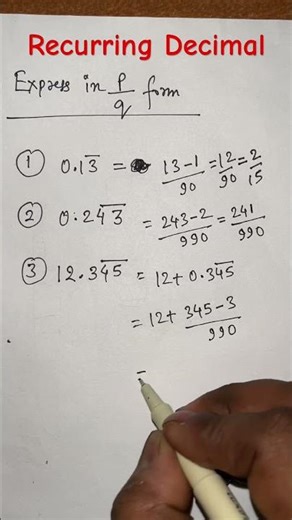 Recurring Decimal
Express in p/q form
① 0.13̅ = (13-1)/90 = 12/90 = 2/15
② 0.24̅3̅ = (243-2)/990 = 241/990
③ 12.34̅5̅ = 12+0.34̅5̅
= 12+ (345-3)/990